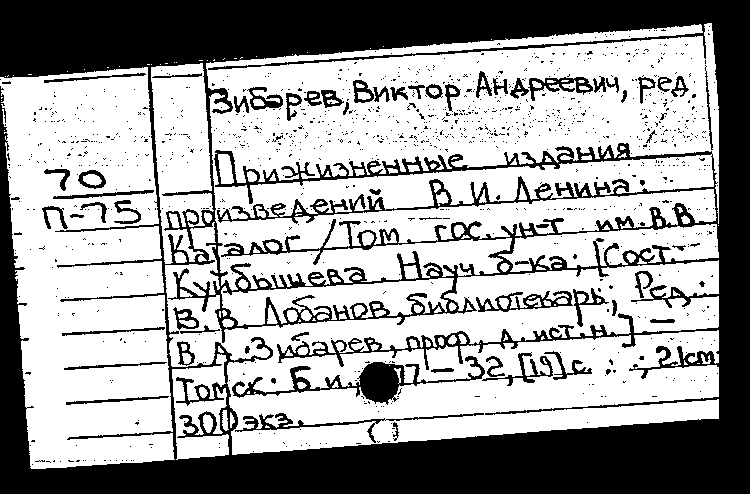 Зибарев, Виктор Андреевич, ред.
Прижизненные издания
70
произведений В.И. Ленина:
П-75
Каталог / Том. гос. ун-т им. В.В.
Куйбышева. Науч. б-ка; [Сост.:
В.В. Лобанов, библиотекарь; Ред.:
В.А. Зибарев, проф., д. ист. н.] —
Томск: Б.и., 77. — 32, [19] с. ; 21cm
300 экз.